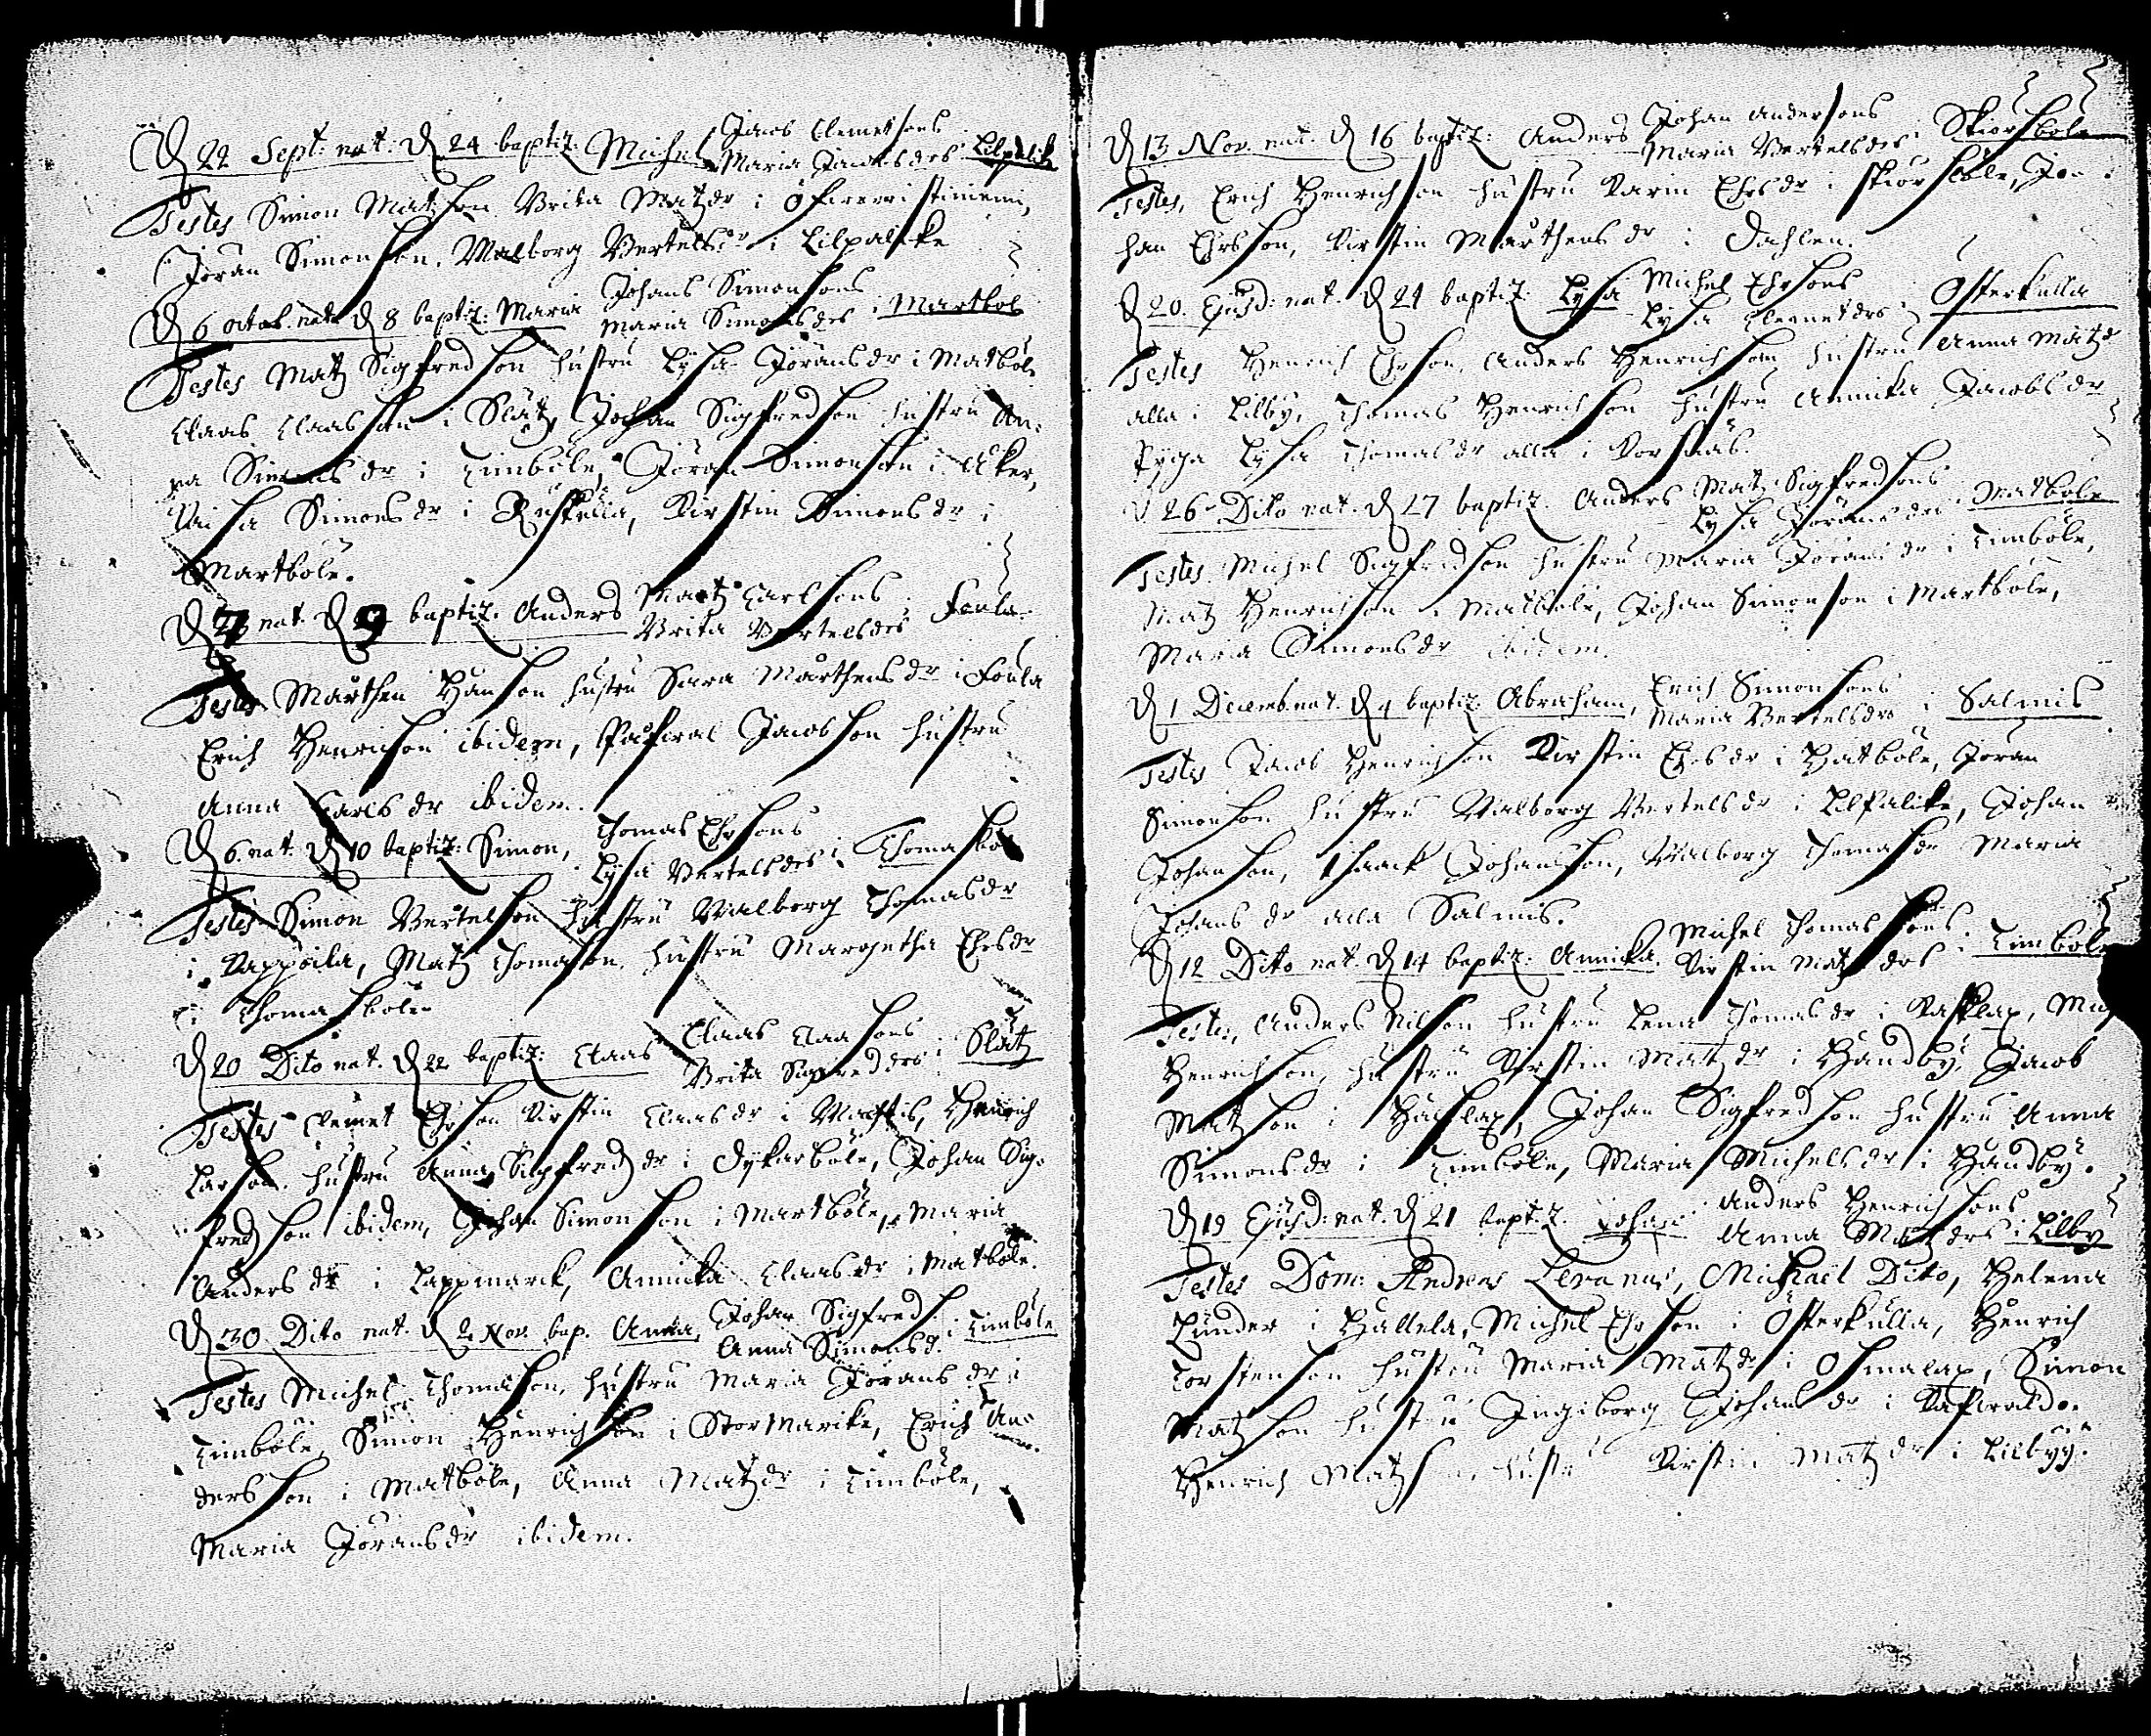 D 22 Sept: nat: D 24 baptiz: Michel Jacob Clemetsons
Maria Jacobsdrs i Lilpalike
Testes Simon Matzson Brita Matzdr i
Jöran Simonsson, Walborg Bertelsdr i Lilpalike
D 6 octob. nat. D 8 baptiz: Maria Johans Simonsons
Maria Simonsdrs i Martbol
Testes Matz Sigfredson hustru Lysa Jöransdr i Matböle
Claas Claasson i Slätz, Johan Sigfredson hustru An:
na Simonsdr i Limböle, Jöran Simonson i Åker,
Simonsdr i Ruskulla, Kirstin Simonsdr i
Martböle.
D nat. D 9 baptiz. Anders Matz Carlsons
Brita Bertelsdrs i
Testes Mårthen Hanson hustru Sara Mårthensdr i
Erich Henrichson ibidem, Jacobson hustru
Anna Carlsdr ibidem.
D 6. nat. D 10 baptiz: Simon, Thomas Ehrsons
Lysa Bertelsdrs i Thomasbol
Testes Simon Bertelson hustru Walborg Thomasdr
i Kappoila, Matz Thomason hustru Margetha Ehrsdr
i Thomasböle
D 20 Dito nat. D 22 baptiz: Claas Claas Claasons
Brita Sigfreddrs i Slätz
Testes Clemet Ehrson Kirstin Claasdr i Henrich
Larson hustru Anna Sigfredzdr i Dykarböle, Johan Sig-
fredson ibidem, Johan Simonson i Martböle, Maria
Andersdr i Lappmarck, Annika Claasdr i Matböle.
D 30. Dito nat. D 2 Nov. bap. Anna, Johan Sigfreds
Anna Simonsd. i Limböle
Testes Michel Thomason, hustru Maria Jöransdr i
Limböle, Simon Henrichson i Storsarike, Erich An-
dersson i Matböle, Anna Matzdr i Limböle,
Maria Jöransdr ibidem.
D 13 Nov. nat. D 16 baptiz: Anders Johan Andersons
Maria Bertelsdrs i Skiorsböle
Testes, Erich Henrichson hustru Karin Ehrsdr i Skiorsböle, Jo-
han Ehrson, Kirstin Mårthensdr i Dahlen.
D 20. Ejusd: nat. D 24 baptiz: Lysa Michel Ehrsons
Lysa Clemetdrs i Österkulla
Testes Henrich Ehrson, Anders Henrichson hustru Anna Matzdr
alla i Lilby, Thomas Henrichson hustru Annika Jacobsdr
Pyga Lysa Thomasdr alla i Korsnäs.
D 26 Dito nat. D 27 baptiz. Anders Matz Sigfredsons
Lysa Jöransdrs i Matböle
Testes. Michel Sigfridson hustru Maria Jöransdr i Limböle,
Matz Henrichson i Matböle, Johan Simonson i Martböle,
Maria Simonsdr ibidem.
D 1 Decemb. nat. D 4 baptiz: Abraham, Erich Simonsons
Maria Bertelsdrs i Salmis
Testes Jacob Henrichson Kirstin Ehrsdr i Hatböle, Jöran
Simonson hustru Walborg Bertelsdr i Lilpalike, Johan
Johanson, Isaack Johansson, Walborg Thomasdr Maria
Johansdr alla Salmis.
D 12 Dito nat. D 14 baptiz: Annika. Michel Thomassons
Kirstin Matzdrs i Limböle
Testes, Anders Nilson hustru Lena Thomasdr i Kasklax,
Henrichson, hustru Kirstin Matzdr i Handby, Jacob
Matzson i Johan Sigfredson hustru Anna
Simonsdr i Limböle, Maria Michelsdr i Handby.
D 19 Ejusd: nat. D 21 bapt:z. Johan Anders Henrichsons
Anna Matzdrs i Lilby
Testes Dom: Andreas Michaël Dito, Helena
i Hallela, Michel Ehrson i Österkulla, Henrich
Torstenson hustru Maria Matzdr i Osmalax, Simon
Matzson hustru Ingiborg Johansdr i
Henrich Matzson, hustr Kirstin Matzdr i Lilbyy.